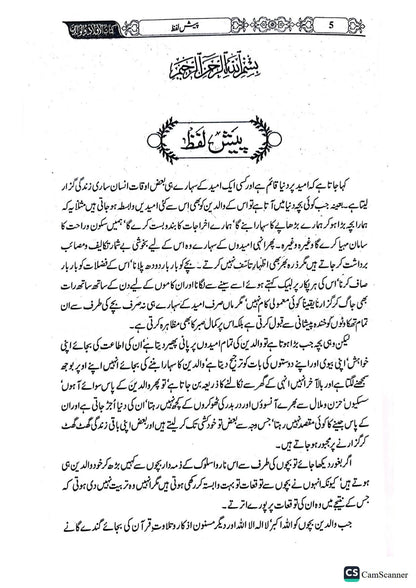 5
پیش لفظ
کتاب الاولاد والوالدین
بسم اللہ الرحمن الرحیم
پیش لفظ
کہا جاتا ہے کہ امید پر دنیا قائم ہے اور کسی ایک امید کے سہارے ہی بعض اوقات انسان ساری زندگی گزار
لیتا ہے۔ بعینہ جب کوئی بچہ دنیا میں آتا ہے تو اس کے والدین کو بھی اس سے کئی امیدیں وابستہ ہو جاتی ہیں مثلاً یہ کہ
ہمارا بچہ بڑا ہو کر ہمارے بڑھاپے کا سہارا بنے گا‘ ہمارے اخراجات کا بندوبست کرے گا‘ ہمیں سکون و راحت کا
سامان مہیا کرے گا وغیرہ وغیرہ۔ پھر انہی امیدوں کے سہارے وہ اس کے لیے بخوشی بے شمار تکالیف و مصائب
برداشت کر جاتے ہیں مگر ذرہ بھر بھی اظہار تاسف نہیں کرتے۔ بچے کو بار بار دودھ پلانا‘ اس کے فضلات کو بار بار
صاف کرنا‘ اس کی ہر پکار پر لبیک کہتے ہوئے اسے سینے سے لگانا اور ان کاموں کے لیے دن کے ساتھ ساتھ رات
بھی جاگ کر گزارنا یقیناً کوئی معمولی کام نہیں‘ مگر ماں صرف امید کے سہارے ہی نہ صرف بچے کی طرف سے ان
تمام تھکاوٹوں کو خندہ پیشانی سے قبول کرتی ہے بلکہ اس پر کمال صبر کا بھی مظاہرہ کرتی ہے۔
لیکن وہی بچہ جب بڑا ہوتا ہے تو والدین کی تمام امیدوں پر پانی پھیر دیتا ہے‘ ان کی اطاعت کی بجائے اپنی
خواہش‘ اپنی بیوی اور اپنے دوستوں کی بات کو ترجیح دیتا ہے‘ والدین کا سہارا بننے کی بجائے انہیں اپنے اوپر بوجھ
سمجھنے لگتا ہے اور بالآخر انہیں انہی کے گھر سے نکالنے کا ذریعہ بن جاتا ہے‘ تو پھر والدین کے پاس سوائے آہوں‘
سسکیوں‘ حزن و ملال سے بھرے آنسوؤں اور در بدر کی ٹھوکروں کے کچھ نہیں رہتا‘ ان کی دنیا اُجڑ جاتی ہے اور ان
کے پاس جینے کا کوئی مقصد نہیں رہتا‘ جس وجہ سے بعض تو خودکشی تک کر لیتے ہیں اور بعض اپنی باقی زندگی گھٹ گھٹ
کر گزارنے پر مجبور ہو جاتے ہیں۔
اگر بغور دیکھا جائے تو بچوں کی طرف سے اس ناروا سلوک کے ذمہ دار بچوں سے کہیں بڑھ کر خود والدین ہی
ہوتے ہیں‘ کیونکہ انہوں نے بچوں سے توقعات تو بہت وابستہ کر رکھی ہوتی ہیں مگر انہیں وہ تربیت نہیں دی ہوتی کہ
جس کے نتیجے میں وہ ان کی توقعات پر پورے اترتے۔
جب والدین بچوں کو اللہ اکبر‘ لا الہ الا اللہ اور دیگر مسنون اذکار و تلاوتِ قرآن کی بجائے گندے گانے
CS CamScanner